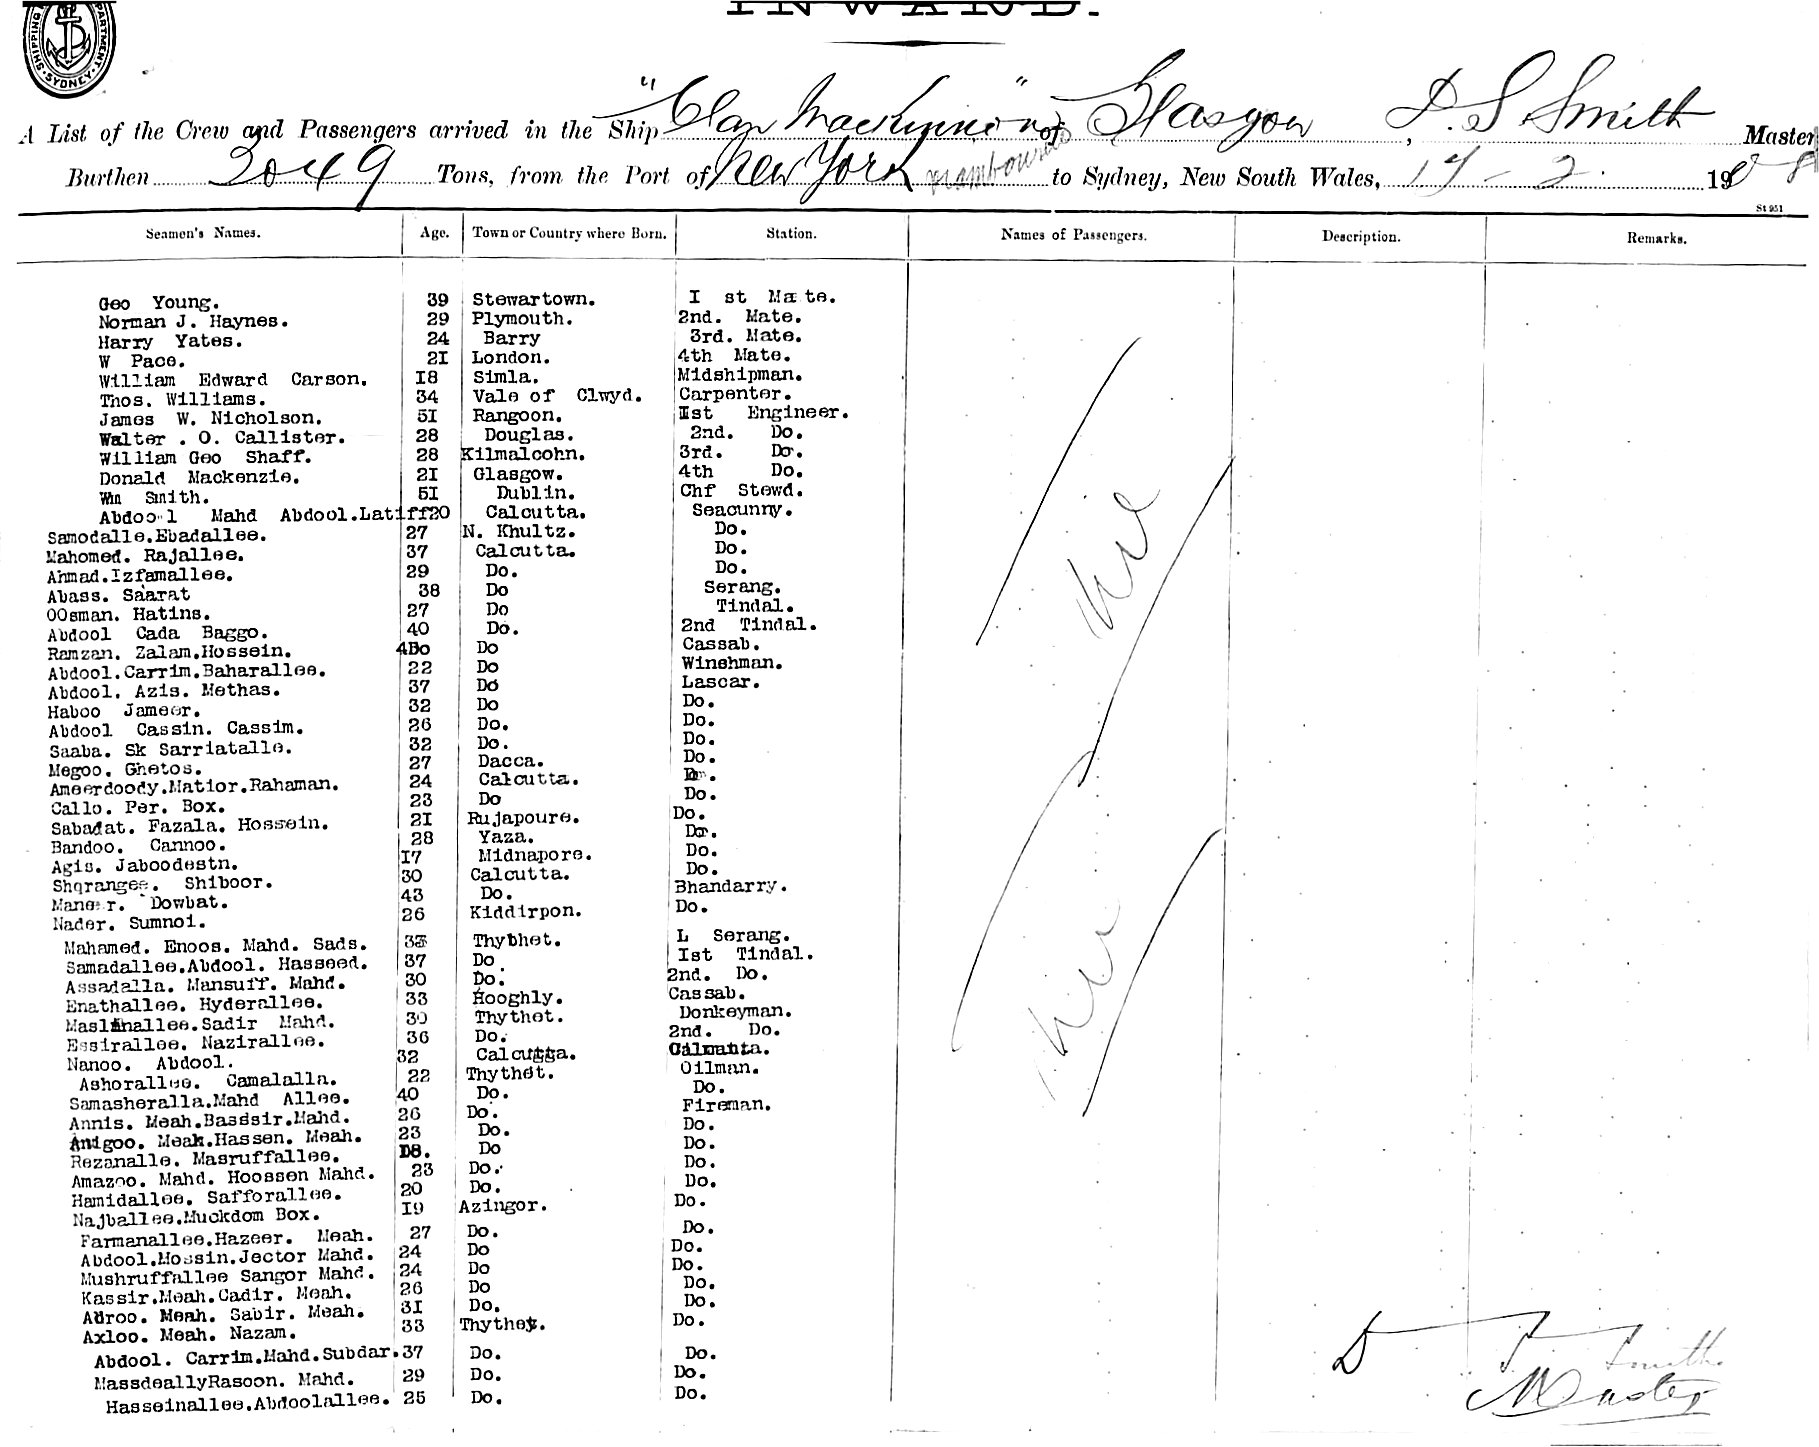 INWARD.
SHIPPING DEPARTMENT. SYDNEY.
A List of the Crew and Passengers arrived in the Ship "Clan Mackinnon" of Glasgow, D. S Smith Master
Burthen 3049 Tons, from the Port of New York to Sydney, New South Wales, 17 - 2. 1908
St 951
Seamen's Names. Age. Town or Country where Born. Station. Names of Passengers. Description. Remarks.
Geo Young. 39 Stewartown. I st Mate.
Norman J. Haynes. 29 Plymouth. 2nd. Mate.
Harry Yates. 24 Barry 3rd. Mate.
W Pace. 2I London. 4th Mate.
William Edward Carson. I8 Simla. Midshipman.
Thos. Williams. 34 Vale of Clwyd. Carpenter.
James W. Nicholson. 5I Rangoon. Ist Engineer.
Walter . O. Callister. 28 Douglas. 2nd. Do.
William Geo Shaff. 28 Kilmalcohn. 3rd. Do.
Donald Mackenzie. 2I Glasgow. 4th Do.
Wm Smith. 5I Dublin. Chf Stewd.
Abdool Mahd Abdool.Latiff 20 Calcutta. Seacunny.
Samodalle.Ebadallee. 27 N. Khultz. Do.
Mahomed. Rajallee. 37 Calcutta. Do.
Ahmad.Izfamallee. 29 Do. Do.
Abass. Saarat 38 Do Serang.
OOsman. Hatins. 27 Do Tindal.
Abdool Cada Baggo. 40 Do. 2nd Tindal.
Ramzan. Zalam.Hossein. Do Cassab.
Abdool.Carrim.Baharallee. 22 Do Winehman.
Abdool. Azis. Methas. 37 Do Lascar.
Haboo Jameer. 32 Do Do.
Abdool Cassin. Cassim. 26 Do. Do.
Saaba. Sk Sarriatalle. 32 Do. Do.
Megoo. Ghetos. 27 Dacca. Do.
Ameerdoody.Matior.Rahaman. 24 Calcutta. Do.
Callo. Per. Box. 23 Do Do.
Sabadat. Fazala. Hossein. 2I Rujapoure. Do.
Bandoo. Cannoo. 28 Yaza. Do.
Agis. Jaboodestn. I7 Midnapore. Do.
Shqrangee. Shiboor. 30 Calcutta. Do.
Maneer. Dowbat. 43 Do. Bhandarry.
Nader. Sumnoi. 26 Kiddirpon. Do.
Mahamed. Enoos. Mahd. Sads. Thybhet. L Serang.
Samadallee.Abdool. Hasseed. 37 Do Ist Tindal.
Assadalla. Mansuff. Mahd. 30 Do. 2nd. Do.
Enathallee. Hyderallee. 33 Hooghly. Cassab.
Maslahallee.Sadir Mahd. 30 Thythet. Donkeyman.
Essirallee. Nazirallee. 36 Do. 2nd. Do.
Nanoo. Abdool. 32 Calcutta.
Ashorallee. Camalalla. 22 Thythet. Oilman.
Samasheralla.Mahd Allee. 40 Do. Do.
Annis. Meah.Bassir.Mahd. 26 Do. Fireman.
Anigoo. Meah.Hassen. Meah. 23 Do. Do.
Rezanalle. Masruffallee. I8. Do Do.
Amazoo. Mahd. Hoossen Mahd. 23 Do. Do.
Hamidallee. Safforallee. 20 Do. Do.
Najballee.Muckdom Box. I9 Azingor. Do.
Farmanallee.Hazeer. Meah. 27 Do. Do.
Abdool.Mossin.Jector Mahd. 24 Do Do.
Mushruffallee Sangor Mahd. 24 Do Do.
Kassir.Meah.Cadir. Meah. 26 Do Do.
Adroo. Meah. Sabir. Meah. 3I Do. Do.
Axloo. Meah. Nazam. 33 Thythet. Do.
Abdool. Carrim.Mahd.Subdar. 37 Do. Do.
MassdeallyRasoon. Mahd. 29 Do. Do.
Hasseinallee.Abdoolallee. 25 Do. Do.
D S Smith
Master